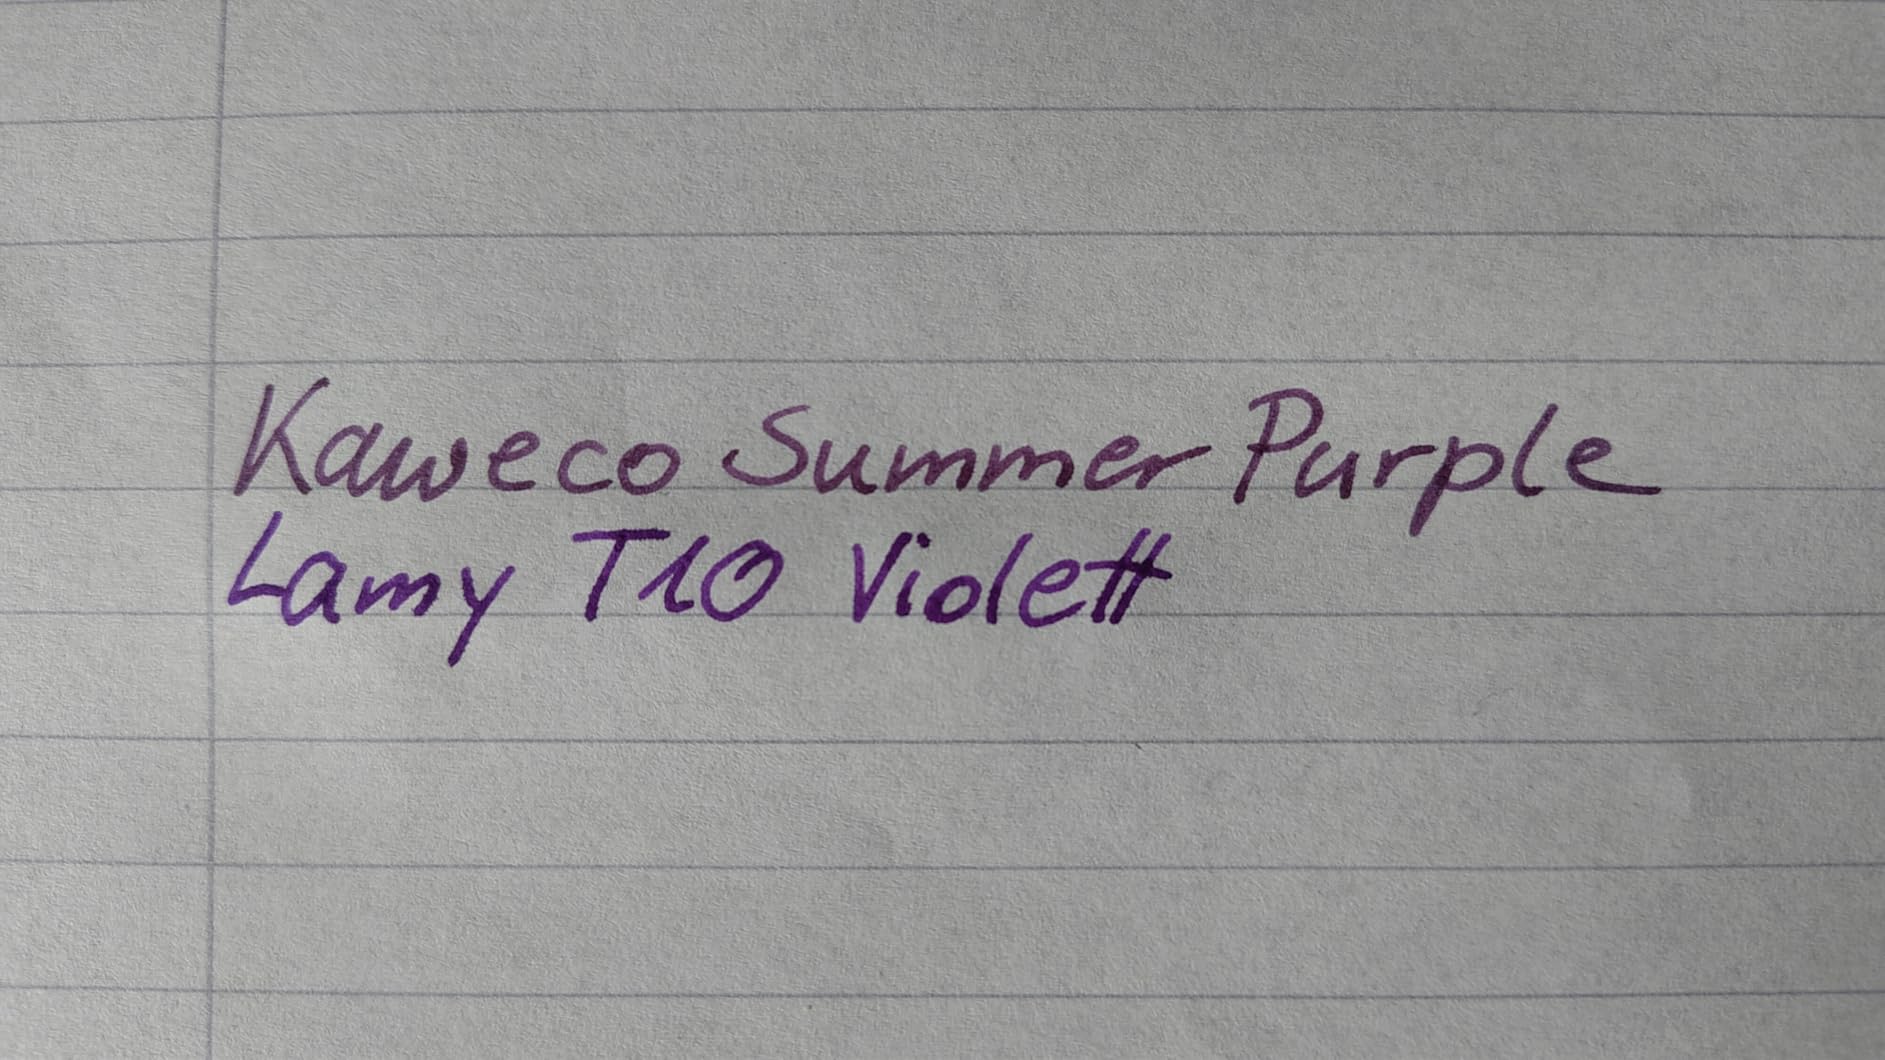 Kaweco Summer Purple
Lamy T10 Violett